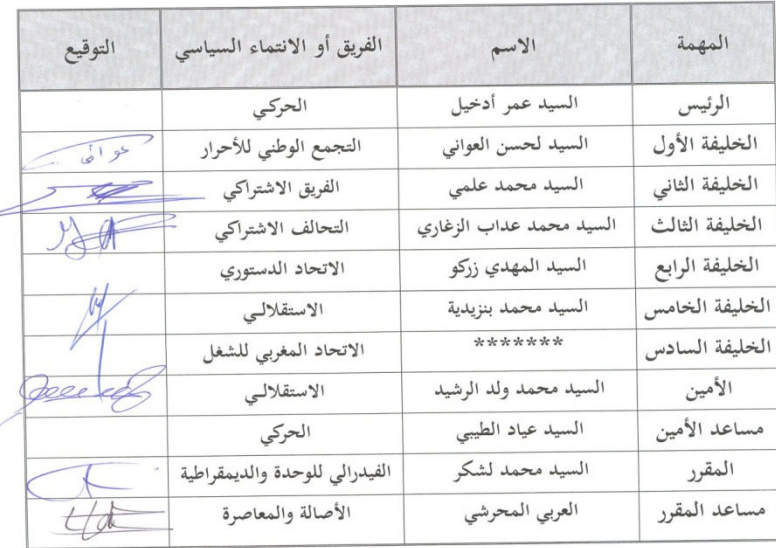 المهمة الاسم الفريق أو الانتماء السياسي التوقيع
الرئيس السيد عمر أدخيل الحركي
الخليفة الأول السيد لحسن العواني التجمع الوطني للأحرار عواني
الخليفة الثاني السيد محمد علمي الفريق الاشتراكي
الخليفة الثالث السيد محمد عداب الزغاري التحالف الاشتراكي
الخليفة الرابع السيد المهدي زركو الاتحاد الدستوري
الخليفة الخامس السيد محمد بنزيدية الاستقلالي
الخليفة السادس ******* الاتحاد المغربي للشغل
الأمين السيد محمد ولد الرشيد الاستقلالي
مساعد الأمين السيد عياد الطيبي الحركي
المقرر السيد محمد لشكر الفيدرالي للوحدة والديمقراطية
مساعد المقرر العربي المحرشي الأصالة والمعاصرة